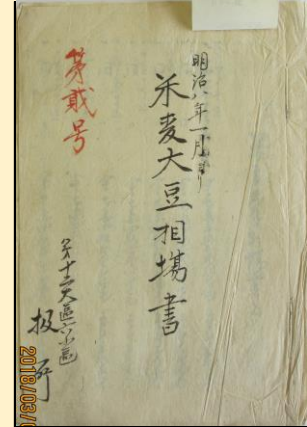 明治八年一月ヨリ
米麦大豆相場書
第貳号
第十二大區六小區
扱所
2018/03/0